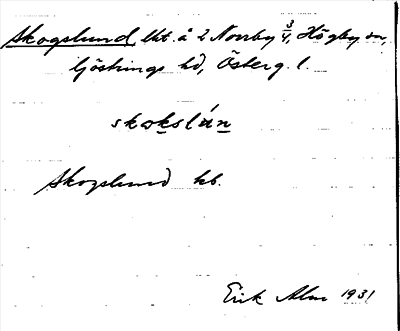 Skogslund, lht. å 2 Norrby 3/4, Högby sn,
Göstrings hd, Österg. l.
skokslún
Skogslund kb.
Erik Alm 1931